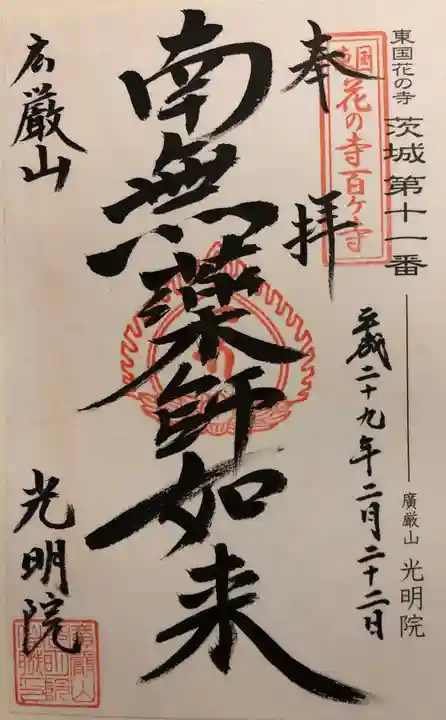 東国花の寺 茨城第十一番 廣厳山 光明院
東国
花の寺百ケ寺
奉拝
平成二十九年二月二十二日
南無薬師如来
広厳山
光明院
廣嚴山
光明院